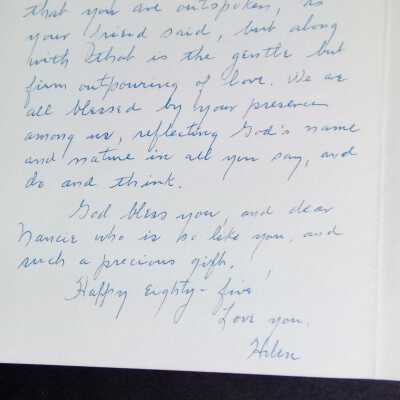 that you are outspoken, as
your friend said, but along
with that is the gentle but
firm outpouring of love. We are
all blessed by your presence
among us, reflecting God's name
and nature in all you say, and
do and think.
God bless you, and dear
Nancie who is so like you, and
such a precious gift.
Happy Eighty-five!
Love you,
Helen